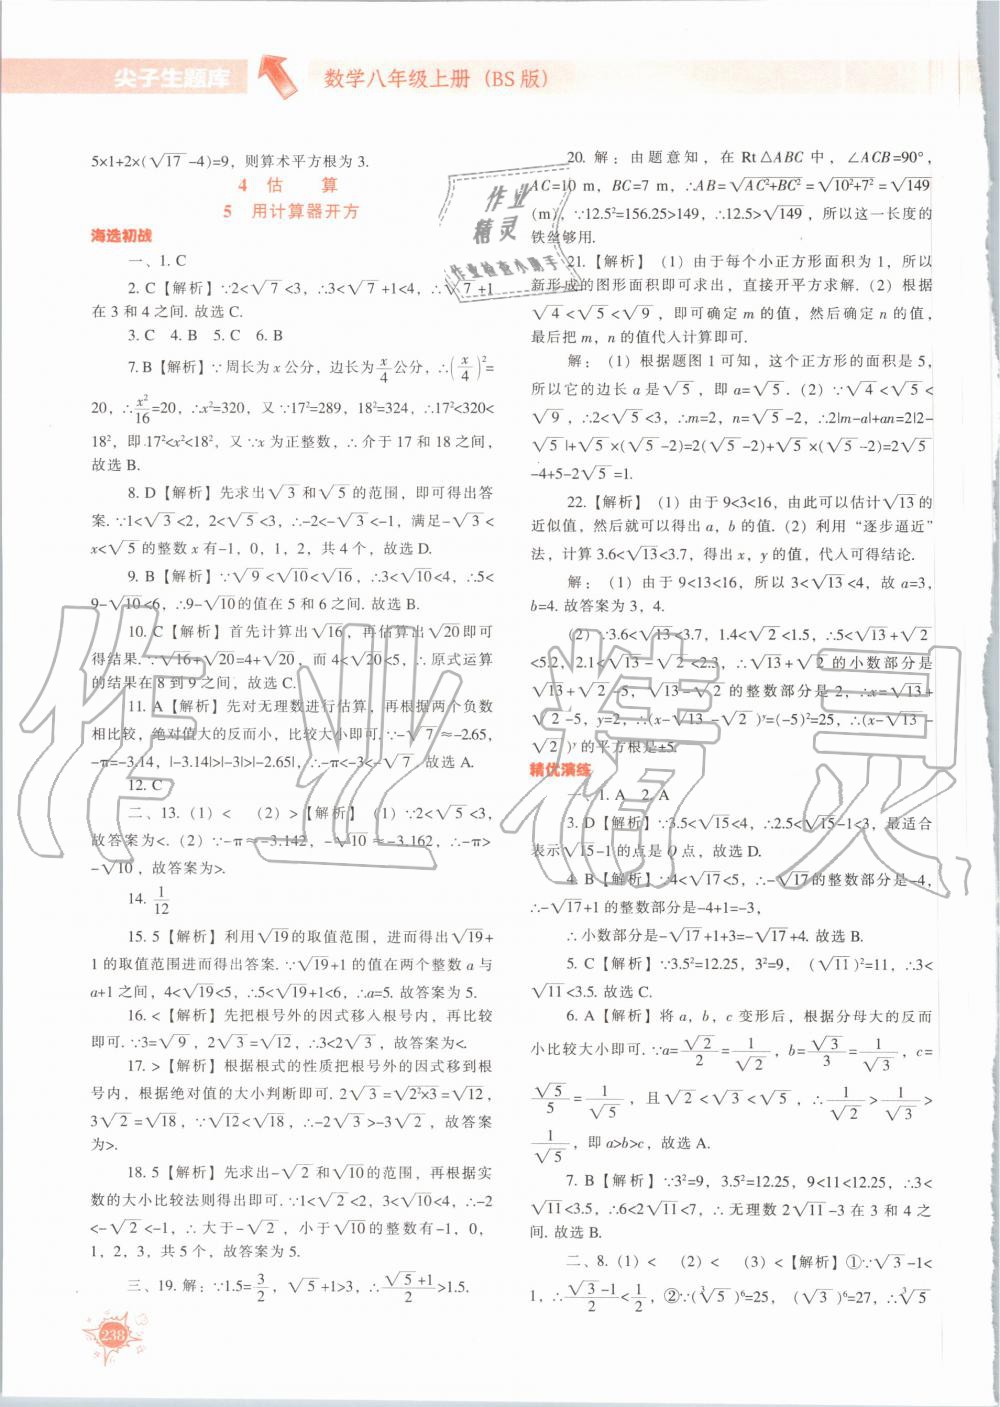 尖子生题库
数学八年级上册（BS版）
5×1+2×(√17-4)=9，则算术平方根为3.
4 估 算
5 用计算器开方
海选初战
一、1. C
2. C【解析】∵2<√7<3，∴3<√7+1<4，∴√7+1
在3和4之间. 故选C.
3. C 4. B 5. C 6. B
7. B【解析】∵周长为x公分，边长为x/4公分，∴(x/4)²=
20，∴x²/16=20，∴x²=320，又∵17²=289，18²=324，∴17²<320<
18²，即17²<x²<18²，又∵x为正整数，∴介于17和18之间，
故选B.
8. D【解析】先求出√3和√5的范围，即可得出答
案.∵1<√3<2，2<√5<3，∴-2<-√3<-1，满足-√3<
x<√5的整数x有-1，0，1，2，共4个，故选D.
9. B【解析】∵√9<√10<√16，∴3<√10<4，∴5<
9-√10<6，∴9-√10的值在5和6之间. 故选B.
10. C【解析】首先计算出√16，再估算出√20即可
得结果.∵√16+√20=4+√20，而4<√20<5，∴原式运算
的结果在8到9之间，故选C.
11. A【解析】先对无理数进行估算，再根据两个负数
相比较，绝对值大的反而小，比较大小即可.∵-√7≈-2.65，
-π≈-3.14，|-3.14|>|-3|>|-2.65|，∴-π<-3<-√7. 故选A.
12. C
二、13.（1）< （2）>【解析】（1）∵2<√5<3，
故答案为<.（2）∵-π≈-3.142，-√10≈-3.162，∴-π>
-√10，故答案为>.
14. 1/12
15. 5【解析】利用√19的取值范围，进而得出√19+
1的取值范围进而得出答案.∵√19+1的值在两个整数a与
a+1之间，4<√19<5，∴5<√19+1<6，∴a=5. 故答案为5.
16. <【解析】先把根号外的因式移入根号内，再比较
即可.∵3=√9，2√3=√12，∴3<2√3，故答案为<.
17. >【解析】根据根式的性质把根号外的因式移到根
号内，根据绝对值的大小判断即可. 2√3=√2²×3=√12，
3√2=√18，∵√12<√18，∴-2√3>-3√2，故答案
为>.
18. 5【解析】先求出-√2和√10的范围，再根据实
数的大小比较法则得出即可.∵1<√2<2，3<√10<4，∴-2
<-√2<-1，∴大于-√2，小于√10的整数有-1，0，
1，2，3，共5个，故答案为5.
三、19. 解：∵1.5=3/2，√5+1>3，∴(√5+1)/2>1.5.
238
20. 解：由题意知，在Rt△ABC中，∠ACB=90°，
AC=10 m，BC=7 m，∴AB=√AC²+BC²=√10²+7²=√149
(m)，∵12.5²=156.25>149，∴12.5>√149，所以这一长度的
铁丝够用.
21.【解析】（1）由于每个小正方形面积为1，所以
新形成的图形面积即可求出，直接开平方求解.（2）根据
√4<√5<√9，即可确定m的值，然后确定n的值，
最后把m，n的值代入计算即可.
解：（1）根据题图1可知，这个正方形的面积是5，
所以它的边长a是√5，即a=√5.（2）∵√4<√5<
√9，∴2<√5<3，∴m=2，n=√5-2，∴2|m-a|+an=2|2-
√5|+√5×(√5-2)=2(√5-2)+√5×(√5-2)=2√5
-4+5-2√5=1.
22.【解析】（1）由于9<3<16，由此可以估计√13的
近似值，然后就可以得出a，b的值.（2）利用“逐步逼近”
法，计算3.6<√13<3.7，得出x，y的值，代人可得结论.
解：（1）由于9<13<16，所以3<√13<4，故a=3，
b=4. 故答案为3，4.
（2）∵3.6<√13<3.7，1.4<√2<1.5，∴5<√13+√2
<5.2，2.1<√13-√2<2.3，∴√13+√2的小数部分是
√13+√2-5，√13-√2的整数部分是2，∴x=√13+
√2-5，y=2，∴(x-√13-√2)ʸ=(-5)²=25，∴(x-√13-
√2)ʸ的平方根是±5.
精优演练
一、1. A 2. A
3. D【解析】∵3.5<√15<4，∴2.5<√15-1<3，最适合
表示√15-1的点是Q点，故选D.
4. B【解析】∵4<√17<5，∴-√17的整数部分是-4，
∴-√17+1的整数部分是-4+1=-3，
∴小数部分是-√17+1+3=-√17+4. 故选B.
5. C【解析】∵3.5²=12.25，3²=9，(√11)²=11，∴3<
√11<3.5. 故选C.
6. A【解析】将a，b，c变形后，根据分母大的反而
小比较大小即可.∵a=√2/2=1/√2，b=√3/3=1/√3，c=
√5/5=1/√5，且√2<√3<√5，∴1/√2>1/√3>
1/√5，即a>b>c，故选A.
7. B【解析】∵3²=9，3.5²=12.25，9<11<12.25，∴3<
√11<3.5，∴6<2√11<7，∴无理数2√11-3在3和4之
间. 故选B.
二、8.（1）< （2）< （3）<【解析】①∵√3-1<
1，∴(√3-1)/2<1/2，②∵(³√5)⁶=25，(√3)⁶=27，∴³√5
作业
精灵
作业检查小助手
作业精灵